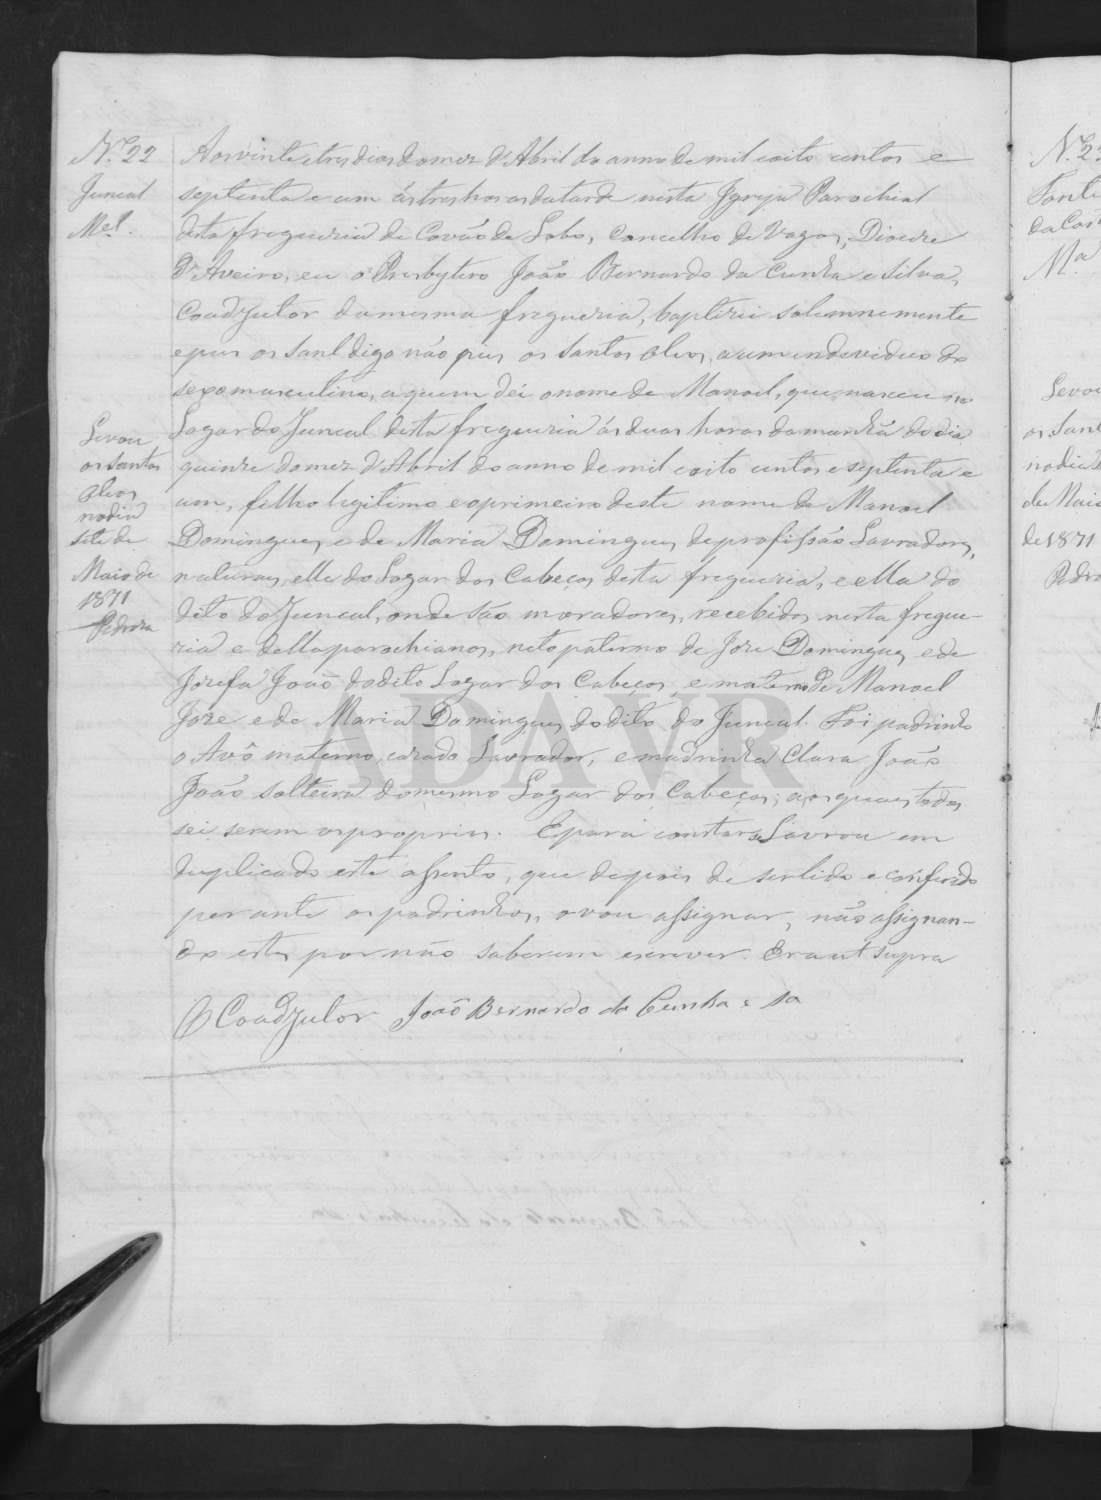 Nº 22
Juncal
Mel.
Aos vinte e tres dias do mez d'Abril do anno de mil e oito centos e
septenta e um ás tres horas da tarde nesta Igreja Parochial
desta freguezia de Covão do Lobo, Concelho de Vagos, Diocese
d'Aveiro, eu o Presbytero João Bernardo da Cunha e Silva,
Coadjutor da mesma freguezia, baptizei solemnemente
e puz os Sant digo não puz os Santos Oleos, a um individuo do
sexo masculino, a quem dei o nome de Manoel, que nasceu no
Lugar do Juncal desta freguezia ás duas horas da manhã do dia
quinze do mez d'Abril do anno de mil e oito centos e septenta e
um, filho legitimo e o primeiro deste nome de Manoel
Domingues, e de Maria Domingues, de profissão Lavradores,
naturaes, elle do Lugar dos Cabeços desta freguezia, e ella do
dito do Juncal, onde são moradores, recebidos nesta fregue-
zia e della parochianos, neto paterno de Joze Domingues, e de
Jozefa João do dito Lugar dos Cabeços, e materno de Manoel
Joze e de Maria Domingues, do dito do Juncal. Foi padrinho
o Avô materno, cazado Lavrador, e madrinha Clara João
João solteira do mesmo Lugar dos Cabeços; aos quaes todos
sei serem os proprios. E para constar se Lavrou em
duplicado este assento, que depois de ser lido e conferido
perante os padrinhos, o vou assignar, não assignan-
do estes por não saberem escrever. Era ut supra
O Coadjutor João Bernardo da Cunha e Sa
Levou
os Santos
Oleos
no dia
sete de
Maio de
1871
Pedroza
ADAVR
Nº 2
Fonte
da Cos
Ma
Levou
os Sant
no dia
de Maio
de 1871
Pedro